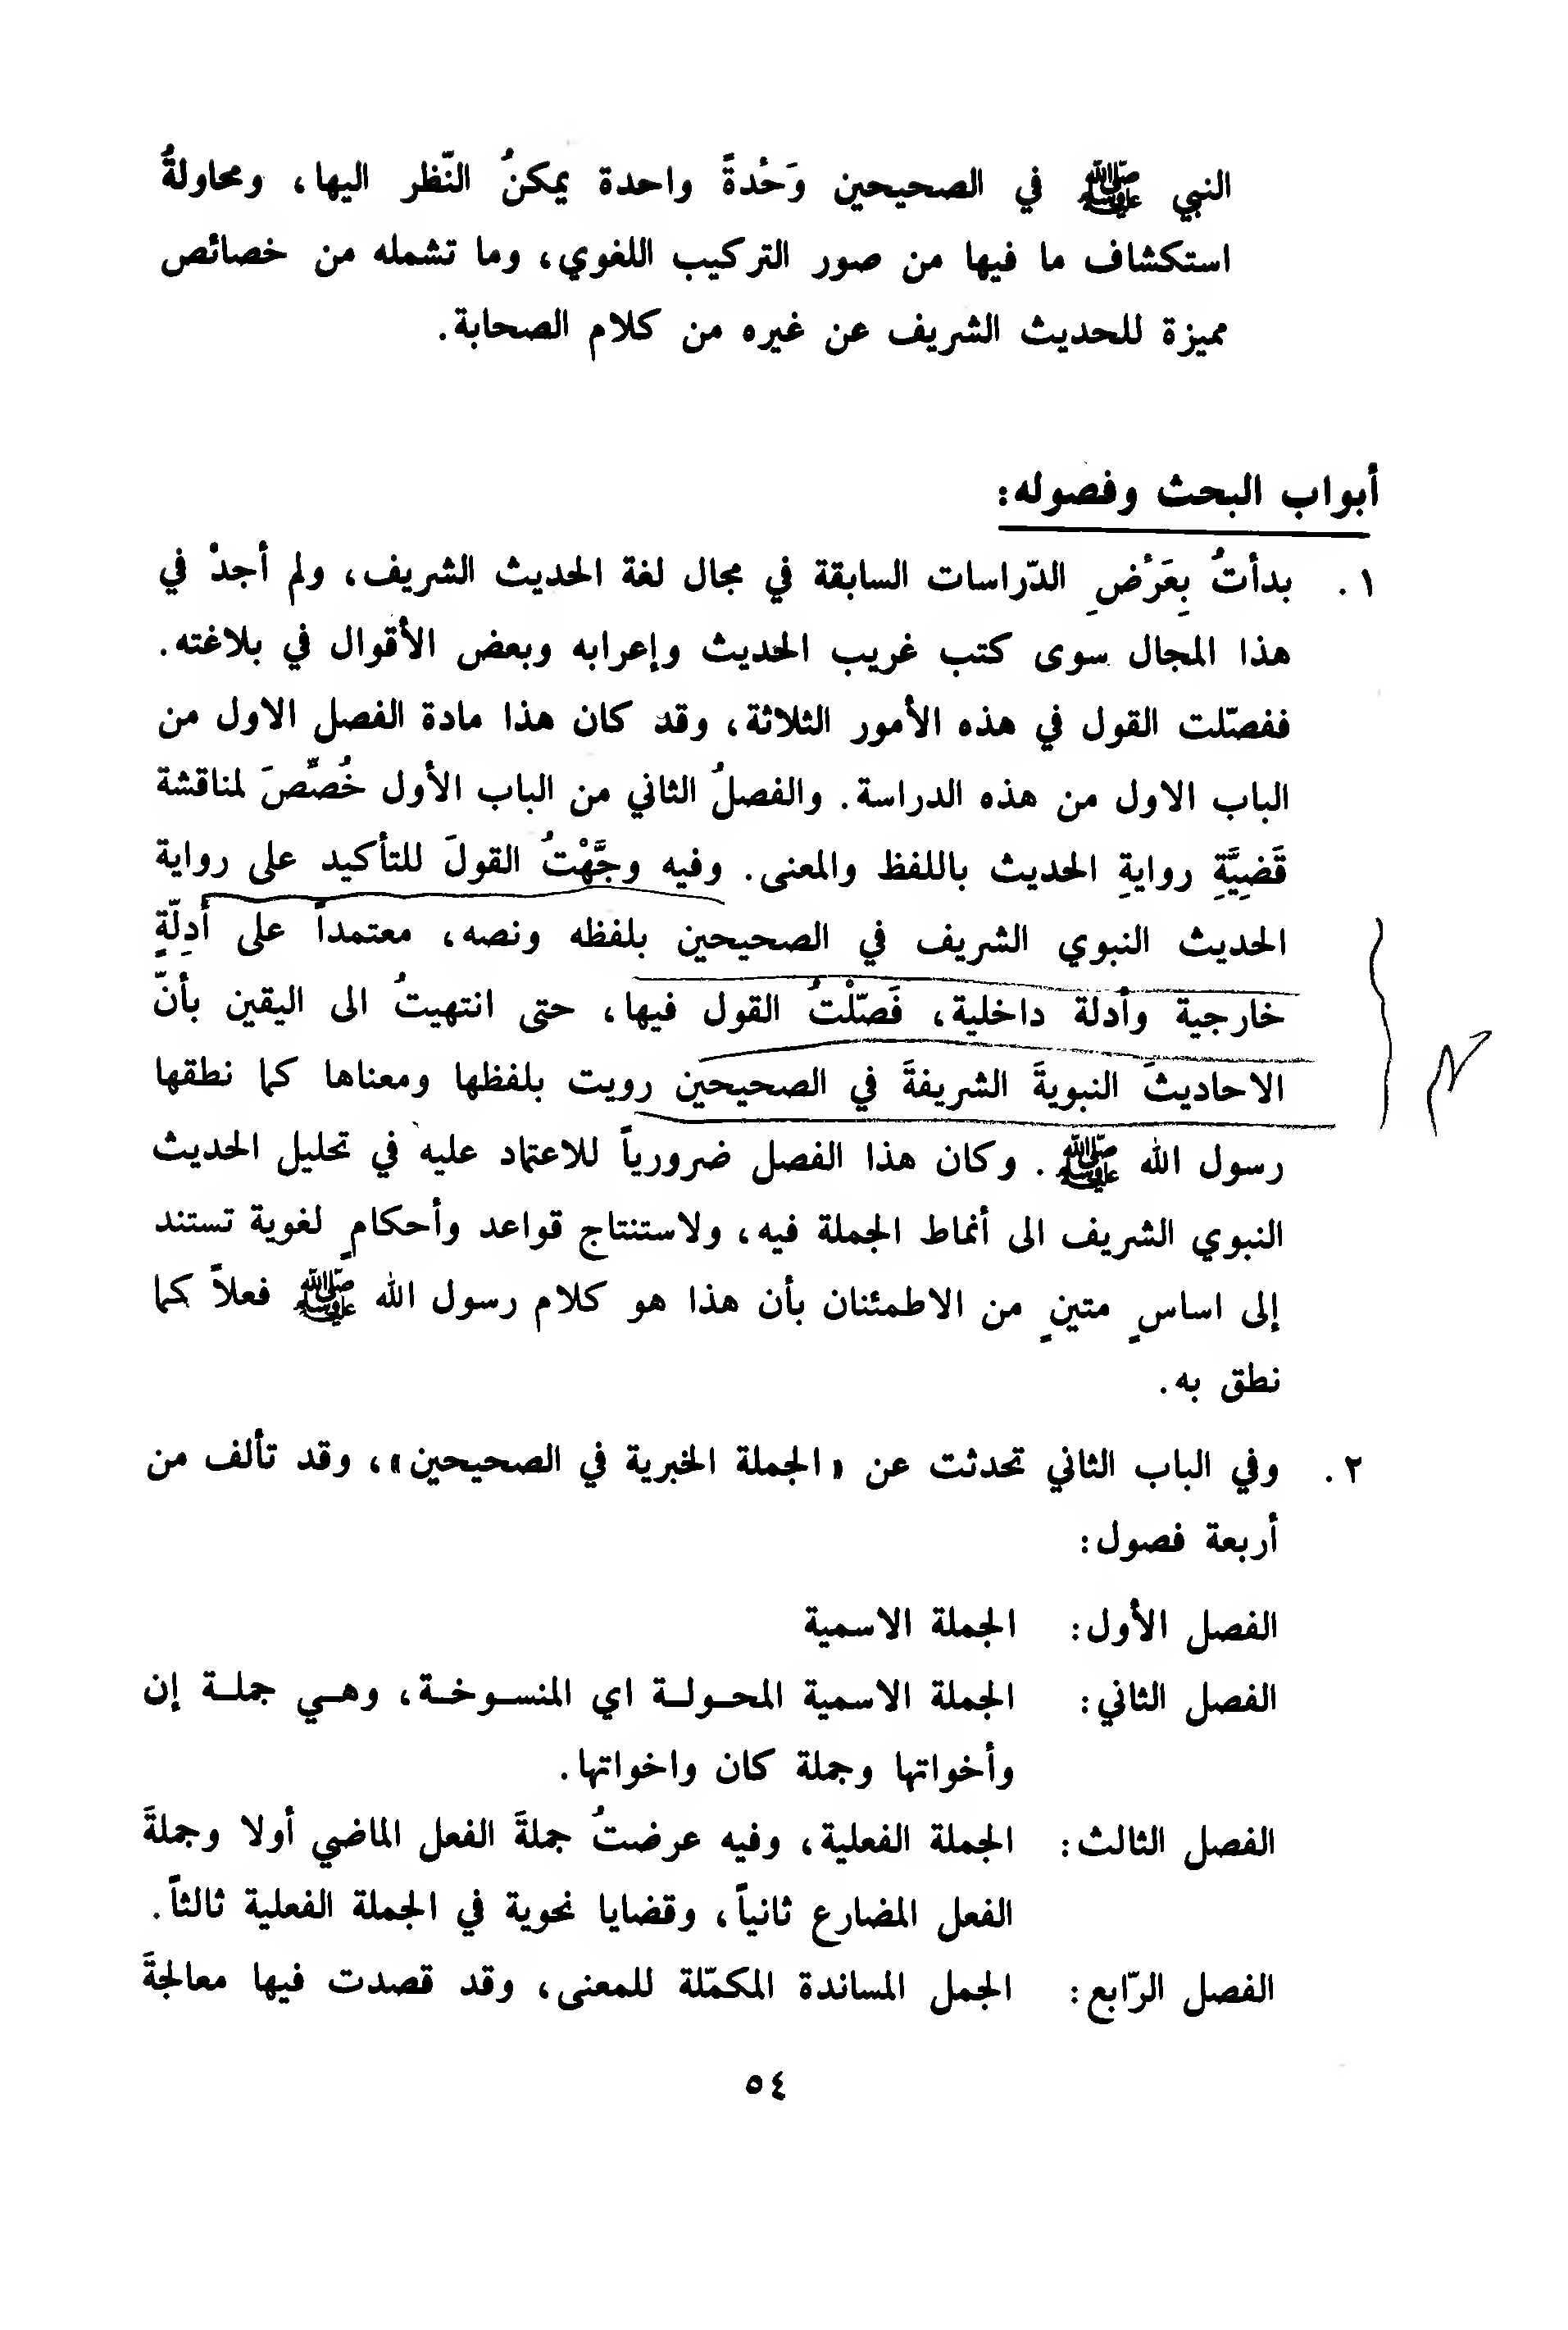 النبي ﷺ في الصحيحين وَحْدةً واحدة يمكنُ النّظر اليها، ومحاولةُ
استكشاف ما فيها من صور التركيب اللغوي، وما تشمله من خصائص
مميزة للحديث الشريف عن غيره من كلام الصحابة.
أبواب البحث وفصوله:
١. بدأتُ بِعَرْضِ الدّراسات السابقة في مجال لغة الحديث الشريف، ولم أجدْ في
هذا المجال سوى كتب غريب الحديث وإعرابه وبعض الأقوال في بلاغته.
ففصّلت القول في هذه الأمور الثلاثة، وقد كان هذا مادة الفصل الاول من
الباب الاول من هذه الدراسة. والفصلُ الثاني من الباب الأول خُصِّصَ لمناقشة
قَضِيَّةِ روايةِ الحديث باللفظ والمعنى. وفيه وجَّهْتُ القولَ للتأكيد على رواية
الحديث النبوي الشريف في الصحيحين بلفظه ونصه، معتمداً على أَدِلّةٍ
خارجية وأدلة داخلية، فَصّلْتُ القول فيها، حتى انتهيتُ الى اليقين بأنّ
الاحاديثَ النبويةَ الشريفةَ في الصحيحين رويت بلفظها ومعناها كما نطقها
رسول الله ﷺ. وكان هذا الفصل ضرورياً للاعتماد عليه في تحليل الحديث
النبوي الشريف الى أنماط الجملة فيه، ولاستنتاج قواعد وأحكامٍ لغوية تستند
إلى اساسٍ متينٍ من الاطمئنان بأن هذا هو كلام رسول الله ﷺ فعلاً كما
نطق به.
٢. وفي الباب الثاني تحدثت عن «الجملة الخبرية في الصحيحين»، وقد تألف من
أربعة فصول:
الفصل الأول: الجملة الاسمية
الفصل الثاني: الجملة الاسمية المحـولـة اي المنسـوخـة، وهـي جملـة إن
وأخواتها وجملة كان واخواتها.
الفصل الثالث: الجملة الفعلية، وفيه عرضتُ جملةَ الفعل الماضي أولا وجملةَ
الفعل المضارع ثانياً، وقضايا نحوية في الجملة الفعلية ثالثاً.
الفصل الرّابع: الجمل المساندة المكمّلة للمعنى، وقد قصدت فيها معالجةَ
٥٤